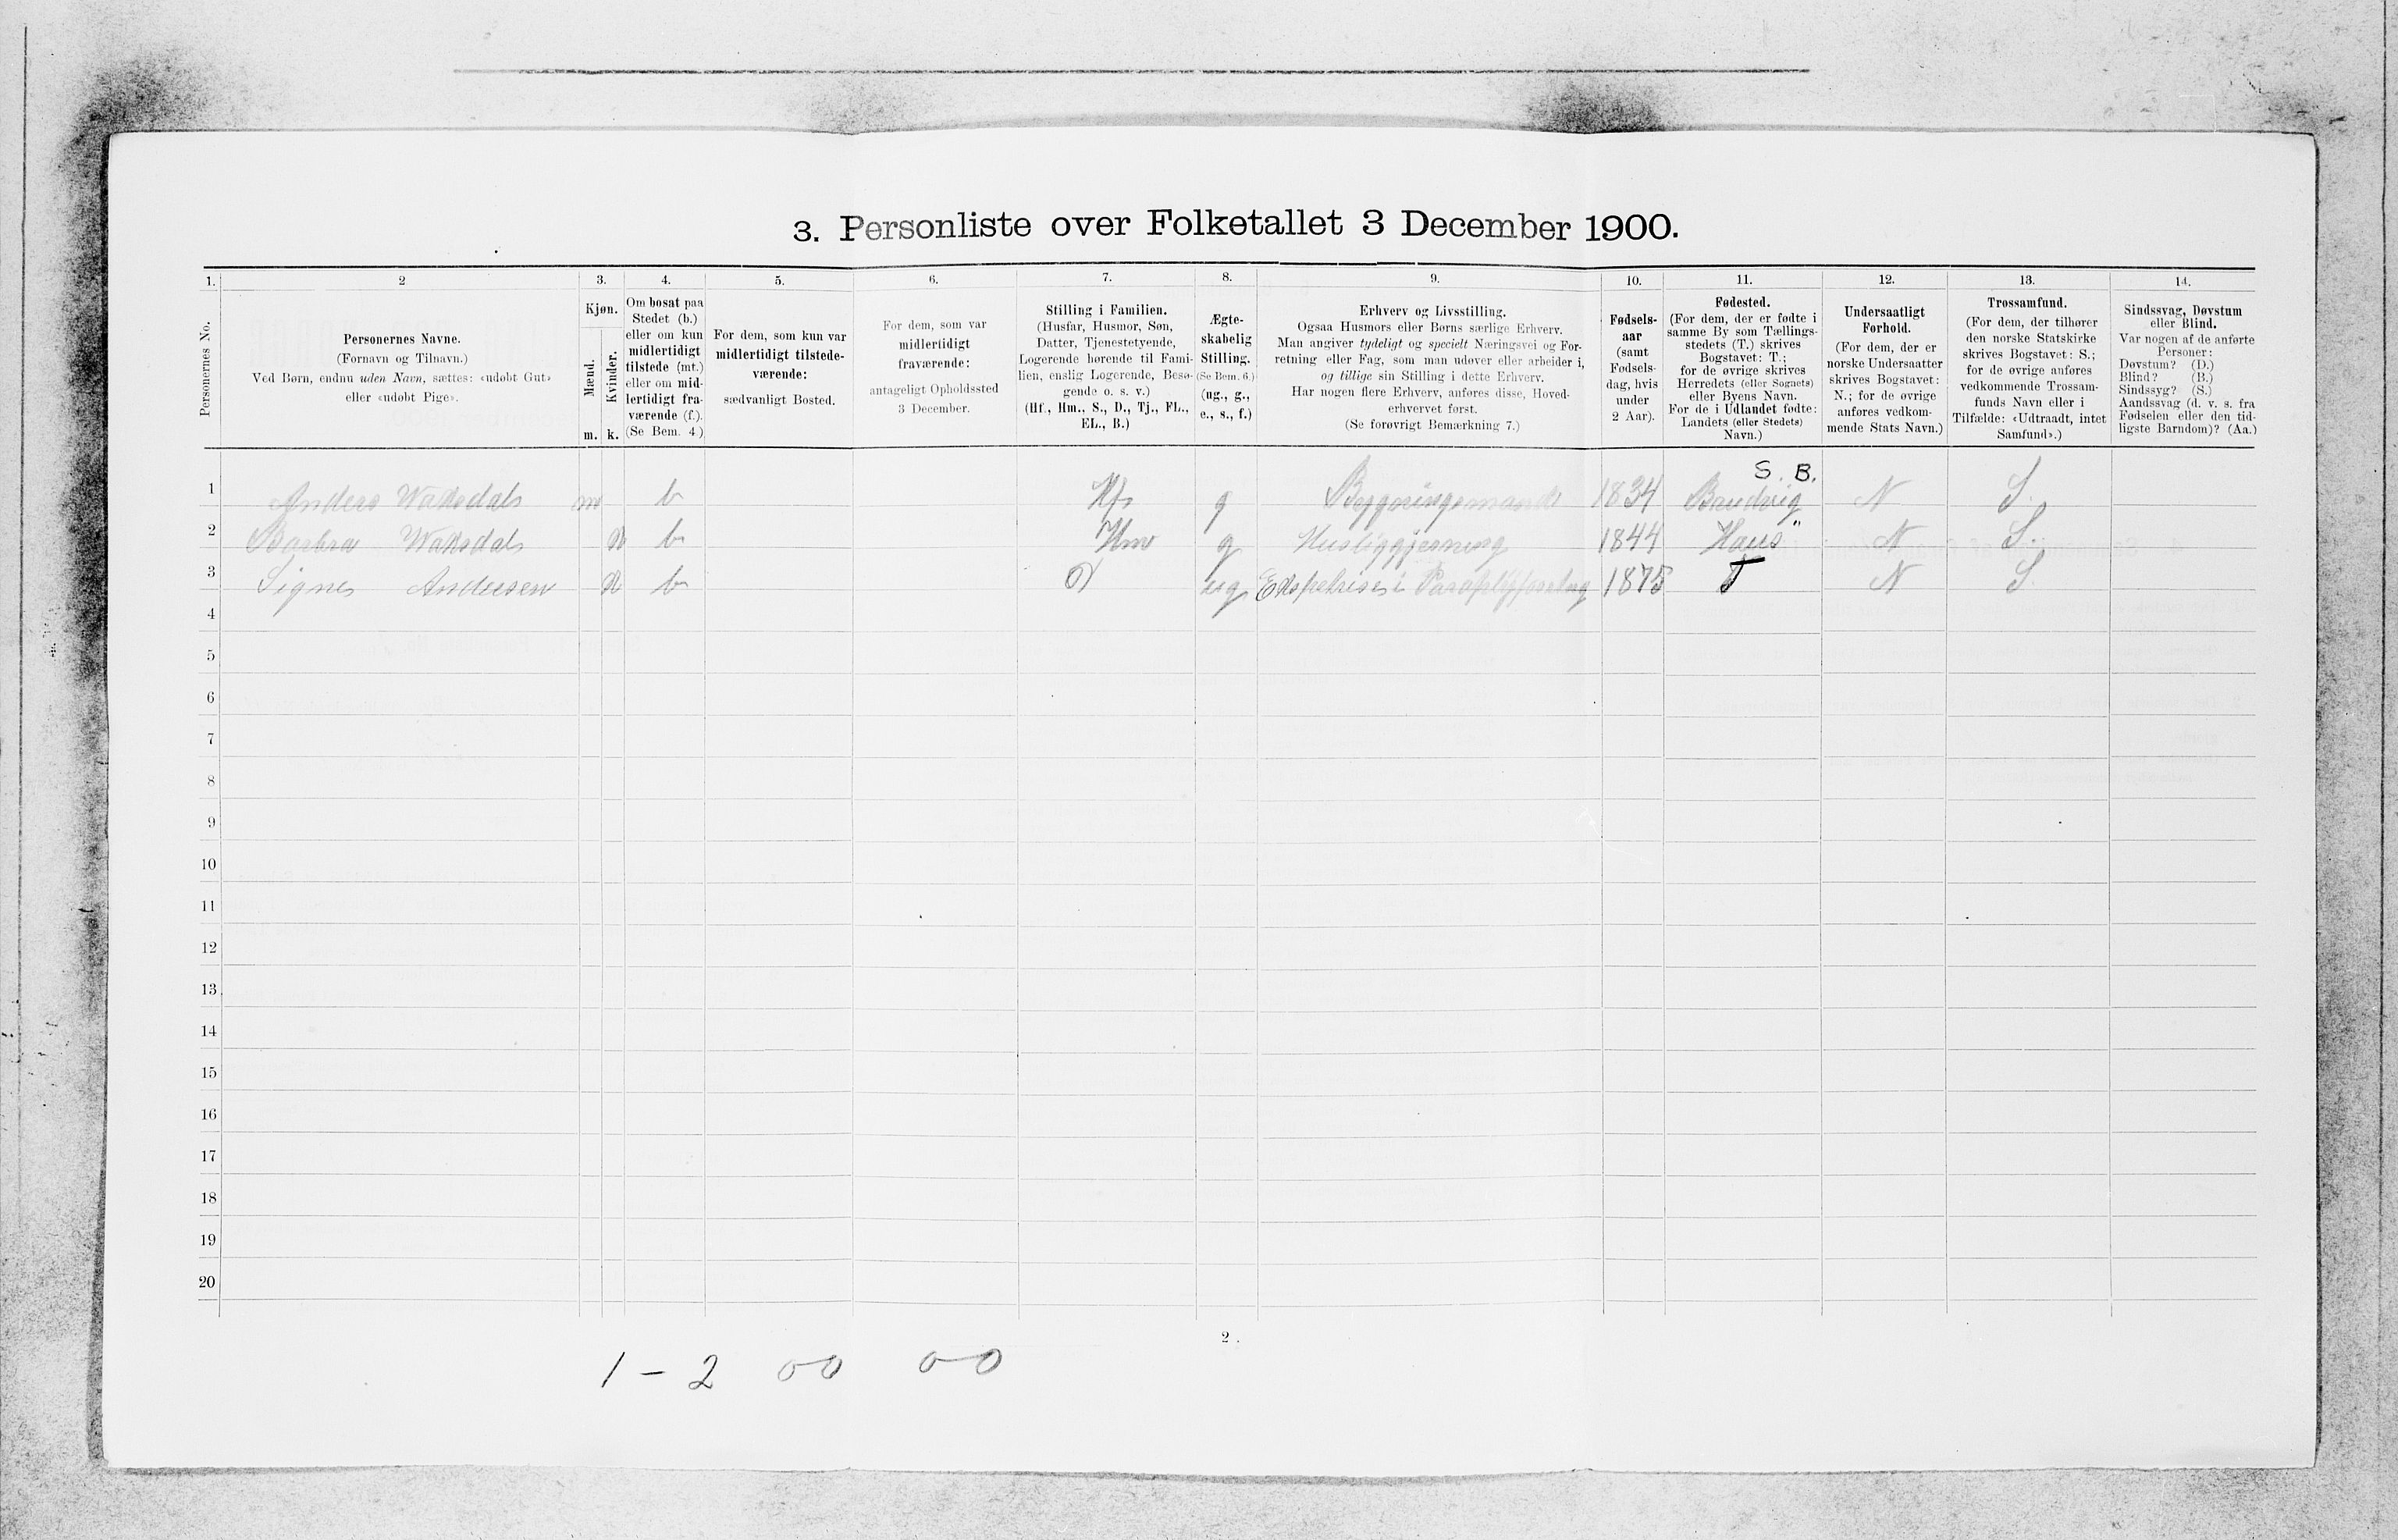 3. Personliste over Folketallet 3 December 1900.
1. 2 3. 4. 5. 6. 7. 8. 9. 10. 11. 12. 13. 14.
Personernes No.
Personernes Navne.
(Fornavn og Tilnavn.)
Ved Børn, endnu uden Navn, sættes: «udøbt Gut»
eller «udøbt Pige».
Kjøn.
Mænd.
Kvinder.
m. k.
Om bosat paa
Stedet (b.)
eller om kun
midlertidigt
tilstede (mt.)
eller om mid-
lertidigt fra-
værende (f.).
(Se Bem. 4.)
For dem, som kun var
midlertidigt tilstede-
værende:
sædvanligt Bosted.
For dem, som var
midlertidigt
fraværende:
antageligt Opholdssted
3 December.
Stilling i Familien.
(Husfar, Husmor, Søn,
Datter, Tjenestetyende,
Logerende hørende til Fami-
lien, enslig Logerende, Besø-
gende o. s. v.)
(Hf., Hm., S., D., Tj., FL.,
EL., B.)
Ægte-
skabelig
Stilling.
(Se Bem. 6.)
(ug., g.,
e., s., f.)
Erhverv og Livsstilling.
Ogsaa Husmors eller Børns særlige Erhverv.
Man angiver tydeligt og specielt Næringsvei og For-
retning eller Fag, som man udøver eller arbeider i,
og tillige sin Stilling i dette Erhverv.
Har nogen flere Erhverv, anføres disse, Hoved-
erhvervet først.
(Se forøvrigt Bemærkning 7.)
Fødsels-
aar
(samt
Fødsels-
dag, hvis
under
2 Aar).
Fødested.
(For dem, der er fødte i
samme By som Tællings-
stedets (T.) skrives
Bogstavet: T.;
for de øvrige skrives
Herredets (eller Sognets)
eller Byens Navn.
For de i Udlandet fødte:
Landets (eller Stedets)
Navn.)
Undersaatligt
Forhold.
(For dem, der er
norske Undersaatter
skrives Bogstavet:
N.; for de øvrige
anføres vedkom-
mende Stats Navn.)
Trossamfund.
(For dem, der tilhører
den norske Statskirke
skrives Bogstavet: S.;
for de øvrige anføres
vedkommende Trossam-
funds Navn eller i
Tilfælde: «Udtraadt, intet
Samfund».)
Sindssvag, Døvstum
eller Blind.
Var nogen af de anførte
Personer:
Døvstum? (D.)
Blind? (B.)
Sindssyg? (S.)
Aandssvag (d. v. s. fra
Fødselen eller den tid-
ligste Barndom)? (Aa.)
S. B.
1 Anders Waksdal m b Hf g Bygningsmand 1834 Brudvig N S.
2 Barbra Waksdal k b Hm g Husliggjerning 1844 Haus " N S.
3 Signe Andersen k b D ug 1875 T N S.
4
5
6
7
8
9
10
11
12
13
14
15
16
17
18
19
20
2
1 - 2 00 00